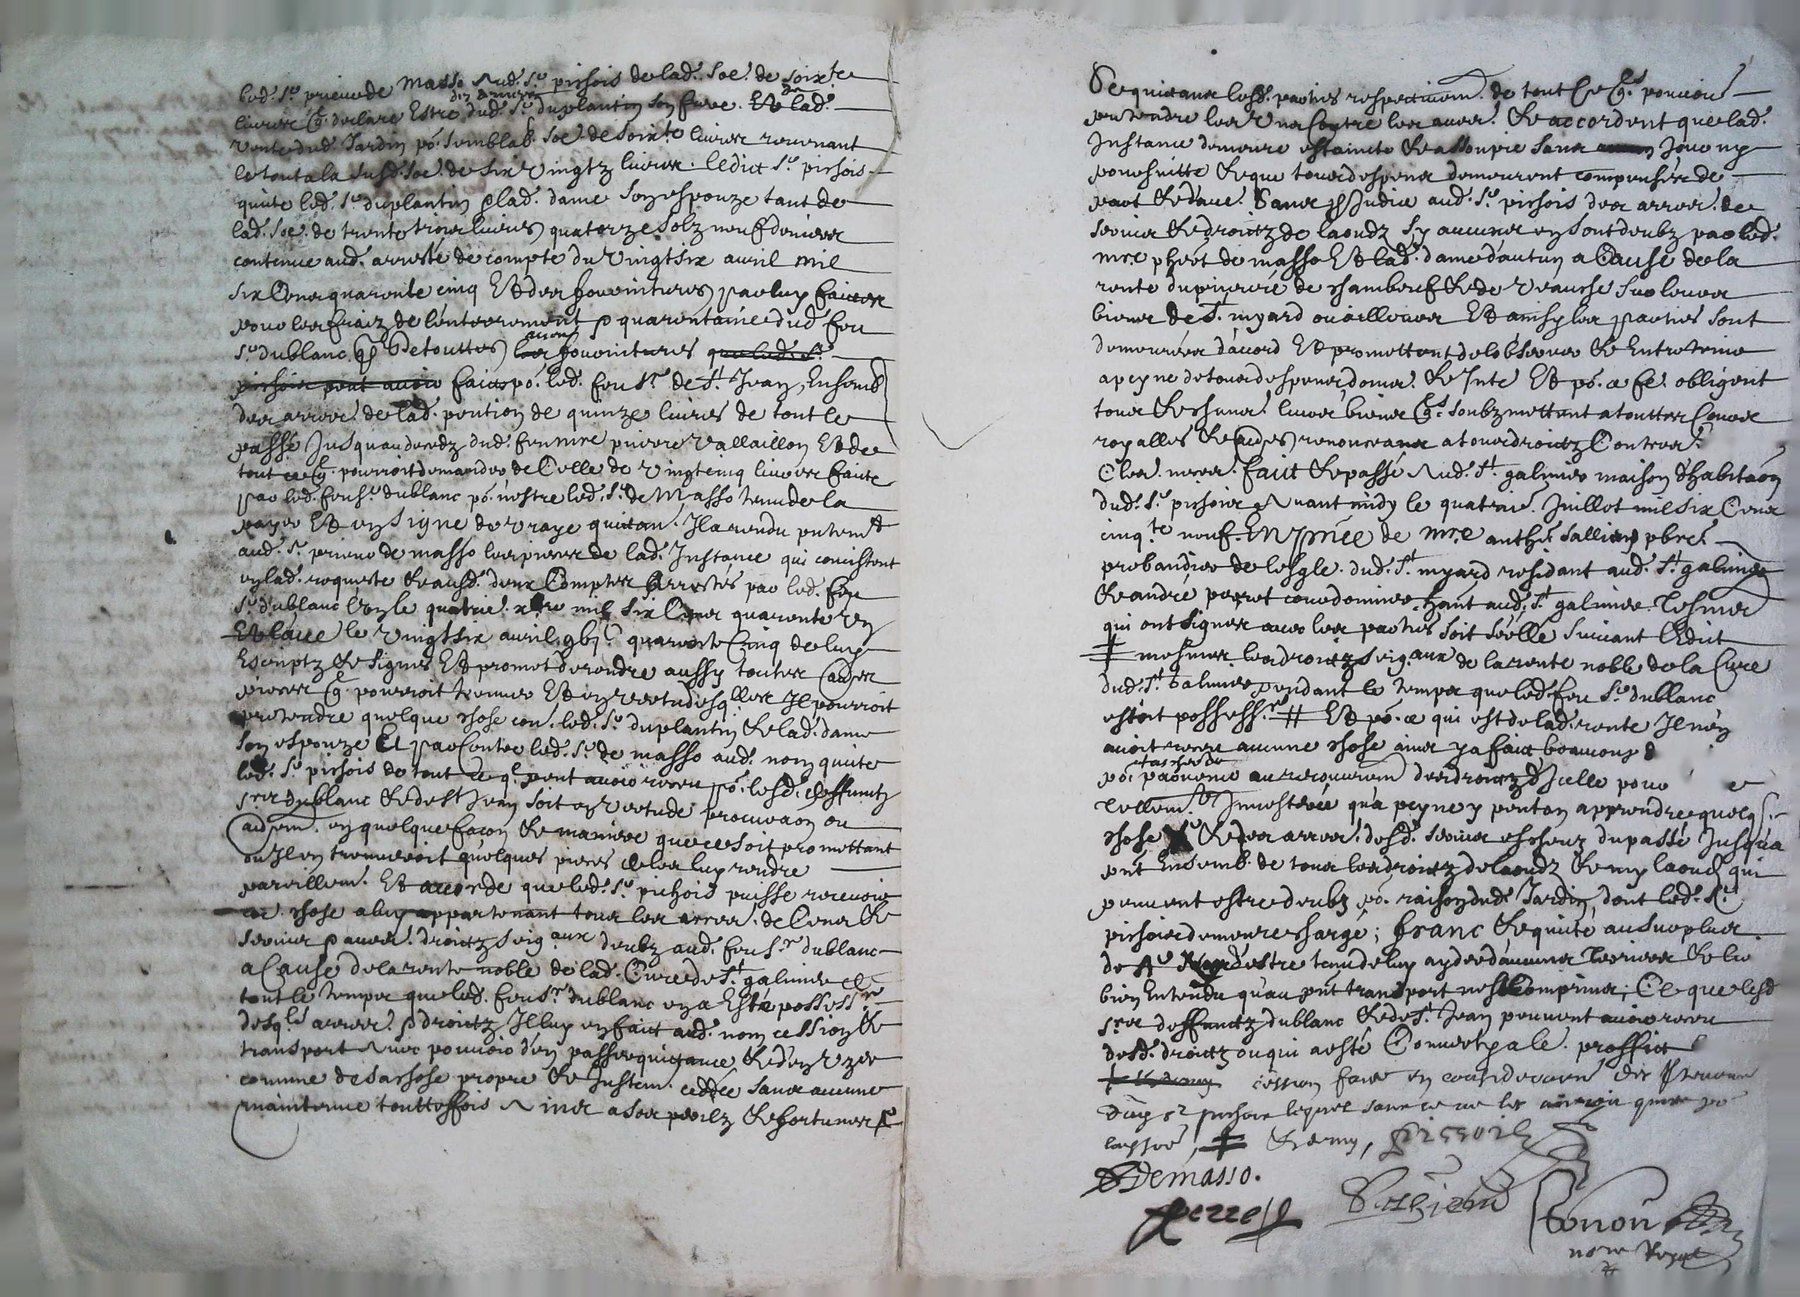 led. sr prieur de masso aud. sr pichois de lad. soe. de soixte
dix a mesme
livres q. declare estre dud. sr duplantin son frere. Et la d.
vente dud. Jardin po. semblab. soe. de soixte livres revenant
le tout a la susd. soe. de six vingtz livres. ledict sr. pichois
quitte led. sr duplantin & lad. dame son espouze tant de
lad. soe. de trente trois livres quatorze solz neuf deniers
contenue aud. arresté de compte du vingtsix avril mil
six cens quarante cinq Et des fournitures par luy faictes
pour les fraiz de lenterrement & quarantaine dud. feu
sr. dublanc, & de touttes autres fournitures que led. sr.
pichois peut avoir faict po. led. feu sr. de st. Jean, Ensemb.
des arrer. de lad. pention de quinze livres de tout le
passé Jusquau decedz dud. feu mre pierre vallaillon Et de
tout ce q. pourroit demander de celle de vingtcinq livres faicte
par led. feu sr. dublanc po. nestre led. sr. de Masso tenu de la
payer Et en signe de vraye quittan. Il a rendu pntemt
aud. sr. prieur de masso les pieces de lad. Instance qui consistent
en lad. requeste & ausd. deux comptes arrestés par led. feu
sr. dublanc l'un le quatrie. xbre mil six cens quarante un
Et laue le vingtsix avril gbjc quarante cinq de luy
Escriptz & signés Et promet de rendre aussy touttes autres
pieces q. pourroit trouver Et en vertu desq.lles Il pourroit
pretendre quelque chose con. led. sr. duplantin & lad. dame
son espouze Et par contre led. sr. de masso aud. nom quitte
led. sr. pichois de tout ce q. peut avoir receu po. lesd. deffunctz
srs dublanc & de st Jean soit en vertu de procuraon ou
aud.emt. en quelque facon & maniere que ce soit promettant
ou Il en trouveroit quelques pieces de les luy rendre
pareillemt. Et accorde que led. sr. pichois puisse recevoir
co. chose a luy appartenant tous les arrer. de cens &
servis & auer. droictz seig.aux deubz aud. feu sr. dublanc
a cause de la rente noble de lad. cure de st. galmier &
tout le temps que led. feu sr. dublanc en a esté possessr
desq.ls arrer. & droictz Il luy en faict aud. nom cession &
transport avec pouvoir d'en passer quittance & d'en uzer
comme de sa chose propre & Justem. ceddée sans aucune
maintenue touttesfois ains a ses perilz & fortunes &
se quittans lesd. parties respectivem. de tout ce q. pouvoient
pretendre les unes contre les aues. & accordent que lad.
Instance demeure estaincte & assoupie sans Jceu ny
poursuitte & que tous despens demeurent compensés de
part & daue. sans prejudice aud. sr. pichois des arrer. de
servis & droictz de laoudz sy aucuns en sont deubz par led.
mre phret de masso Et lad. dame dautun a cause de la
rente du prieuré de chambeuf & de veausche sur leurs
biens de st. myard ou ailleurs Et ainsy les parties sont
demeurées d'accord Et promettent de lobserver & entretenir
a peyne de tous despens doma. & Inte Et po. ce fe. obligent
tous & chuns. leurs biens q.s soubzmettant a touttes cours
royalles & audes renonceans a tous droictz contres.
Cles. neces. faict & passé aud. st. galmier maison d'habitaon
dud. sr. pichois avant midy le quatrie. Juillet mil six cens
cinq.te neuf. En pnce de mre anth. sallien pbre.
probandier de lesgle. dud. st. myard residant aud. st. galmier
& andré perret cordonnier hant aud. st. galmier tesmoins
qui ont signes avec les parties soit seellé suivant l'Edict
ǂ mesmes les droictz seig.aux de la rente noble de la cure
dud. st. galmier pendant le temps que led. feu sr. dublanc
estoit possess.r ǂ Et po. ce qui est de lad. rente Il n'en
avoit receu aucune chose ains y a faict beaucoup d
tascher de
po. parvenir au recouvrem. des droictz d'Icelle pour e
tellem. Inusitée qu'a peyne y peut on apprendre quelq.
chose & des arrer. desd. servis escheuz du passé Jusqua
pnt Ensemb. de tous les droictz de laoudz & my laoudz qui
peuvent estre deubz po. raison dud. Jardin dont led. sr.
pichois demeure chargé; franc & quitte au surplus
de estre tenu de luy ayder d'aucuns terriers &
bien Entendu qu'au pnt transport nest comprins; Ce que lesd
srs deffunctz dublanc & de st. Jean peuvent avoir receu
desd. droictz ou qui a esté converty a le. proffict
cession faite en consideraon des
dud sr pichois lequel sans ce ne les
laissée, ǂ & my, Pichois
Demasso.
Perret Sallien Tonon
nore Royal